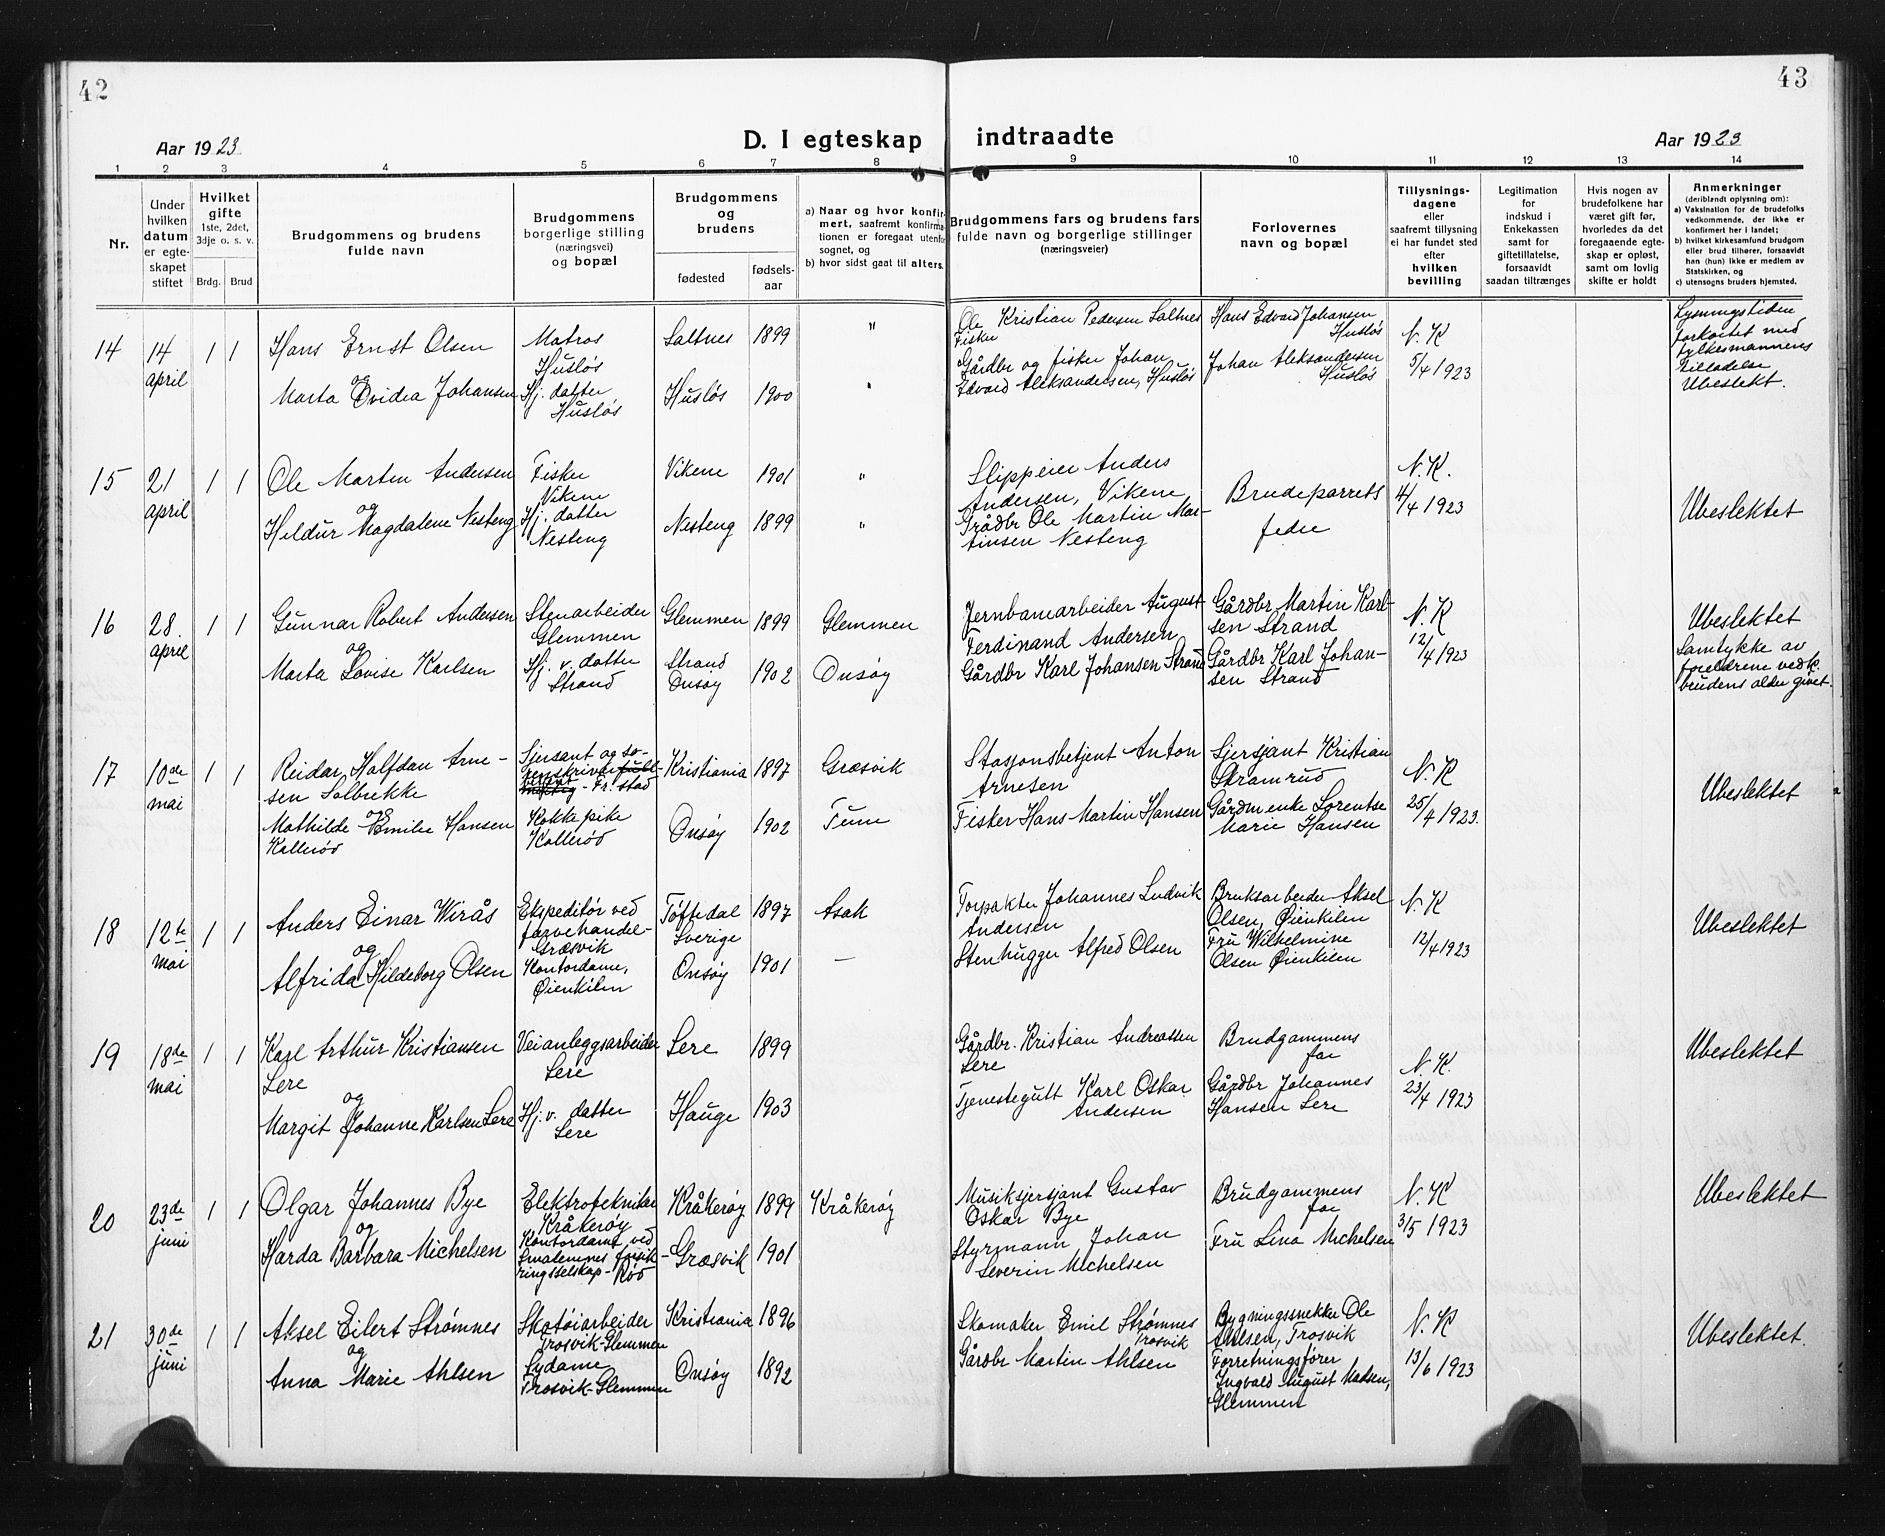 42
43
Aar 1923
D. I egteskap indtraadte
Aar 1923
1 2 3 4 5 6 7 8 9 10 11 12 13 14
Nr.
Under
hvilken
datum
er egte-
skapet
stiftet
Hvilket
gifte
1ste, 2det,
3dje o. s. v.
Brdg. Brud
Brudgommens og brudens
fulde navn
Brudgommens
borgerlige stilling
(næringsvei)
og bopæl
Brudgommens
og
brudens
fødested
fødsels-
aar
a) Naar og hvor konfir-
mert, saafremt konfirma-
tionen er foregaat utenfor
sognet, og
b) hvor sidst gaat til alters.
Brudgommens fars og brudens fars
fulde navn og borgerlige stillinger
(næringsveier)
Forlovernes
navn og bopæl
Tillysnings-
dagene
eller
saafremt tillysning
ei har fundet sted
efter
hvilken
bevilling
Legitimation
for
indskud i
Enkekassen
samt for
giftetillatelse,
forsaavidt
saadan tiltrænges
Hvis nogen av
brudefolkene har
været gift før,
hvorledes da det
foregaaende egte-
skap er opløst,
samt om lovlig
skifte er holdt
Anmerkninger
(deriblandt oplysning om):
a) Vaksination for de brudefolks
vedkommende, der ikke er
konfirmert her i landet;
b) hvilket kirkesamfund brudgom
eller brud tilhører, forsaavidt
han (hun) ikke er medlem av
Statskirken, og
c) utensogns bruders hjemsted.
14
14
april
1 1
Hans Ernst Olsen
og
Marta Ovidia Johansen
Matros
Husløs
Hj. datter
Husløs
Saltnes 1899
Husløs 1900
"
"
Ole Kristian Pedersen Saltnes
Fisker
Gårdbr og fisker Johan
Edvard Aleksandersen, Husløs
Hans Edvard Johansen
Husløs
Johan Aleksandersen
Husløs
N. K
5/4 1923
Lysningstiden
forkortet med
fylkesmannens
tilladelse
Ubeslekt.
15
21
april
1 1
Ole Marten Andersen
og
Hildur Magdalene Nesteng
Fisker
Vikene
Hj. datter
Nesteng
Vikene 1901
Nesteng 1899
"
"
Slippeier Anders
Andersen, Vikene
Grådbr Ole Martin Mar-
tinsen Nesteng
Brudeparrets
fedre
N. K.
4/4 1923
Ubeslektet
16
28.
april
1 1
Gunnar Robert Andersen
og
Marta Lovise Karlsen
Stenarbeider
Glemmen
Hj. v. datter
Strand
Glemmen 1899
Strand
Onsøy 1902
Glemmen
Onsøy
Jernbanearbeider August
Ferdinand Andersen
Gårdbr Karl Johansen Strand
Gårdbr Martin Karl-
sen Strand
Gårdbr Karl Johan-
sen Strand
N. K
12/4 1923
Ubeslektet
Samtykke av
foreldrene vedk.
brudens alder givet.
17
10de
mai
1 1
Reidar Halfdan Arne-
sen Solbrekke
og
Mathilde Emilie Hansen
Kallerød
Sjersant og so-
renskriver
- Fr. stad
Kokkepike
Kallerød
Kristiania 1897
Onsøy 1902
Græsvik
Tune
Stasjonsbetjent Anton
Arnesen
Fisker Hans Martin Hansen
Sjersjant Kristian
Stramrud
Gårdm enke Lorentse
Marie Hansen
N. K
25/4 1923.
Ubeslektet
18
12te
mai
1 1
Anders Einar Wirås
og
Alfrida Hildeborg Olsen
Ekspeditør ved
farvehandel-
Græsvik
Kontordame,
Øienkilen
Tøftedal
Sverige
1897
Onsøy 1901
Asak
—
Forpakter Johannes Ludvik
Andersen
Stenhugger Alfred Olsen
Bruksarbeider Aksel
Olsen, Øienkilen
Fru Wilhelmine
Olsen Øienkilen
N. K
12/4 1923
Ubeslektet
19
18de
mai
1 1
Karl Arthur Kristiansen
Lere
og
Margit Johanne Karlsen Lere
Veianleggsarbeider
Lere
Hj. v. datter
Lere
Lere 1899
Hauge 1903
Gårdbr. Kristian Andreassen
Lere
Tjenestegutt Karl Oskar
Andersen
Brudgommens
far
Gårdbr Johannes
Hansen Lere
N. K.
23/4 1923
Ubeslektet
20
23de
juni
1 1
Olgar Johannes Bye
og
Harda Barbara Michelsen
Elektrotekniker
Kråkerøy
Kontordame ved
Smålenenes forsik-
ringsselskap- Rød
Kråkerøy 1899
Græsvik 1901
Kråkerøy
Musiksjersjant Gustav
Oskar Bye
Styrmann Johan
Severin Michelsen
Brudgommens
far
Fru Lina Michelsen
N. K
3/5 1923
Ubeslektet
21
30de
juni
1 1
Aksel Eilert Strømnes
og
Anna Marie Ahlsen
Skotøiarbeider
Trosvik-Glemmen
Sydame
Trosvik-Glemmen
Kristiania 1896
Onsøy 1892
Skomaker Emil Strømnes
Trosvik
Gårdbr Martin Ahlsen
Bygningssnekker Ole
Ahlsen, Trosvik
Forretningsfører
Ingvald August Madsen,
Glemmen
N. K
13/6 1923
Ubeslektet.